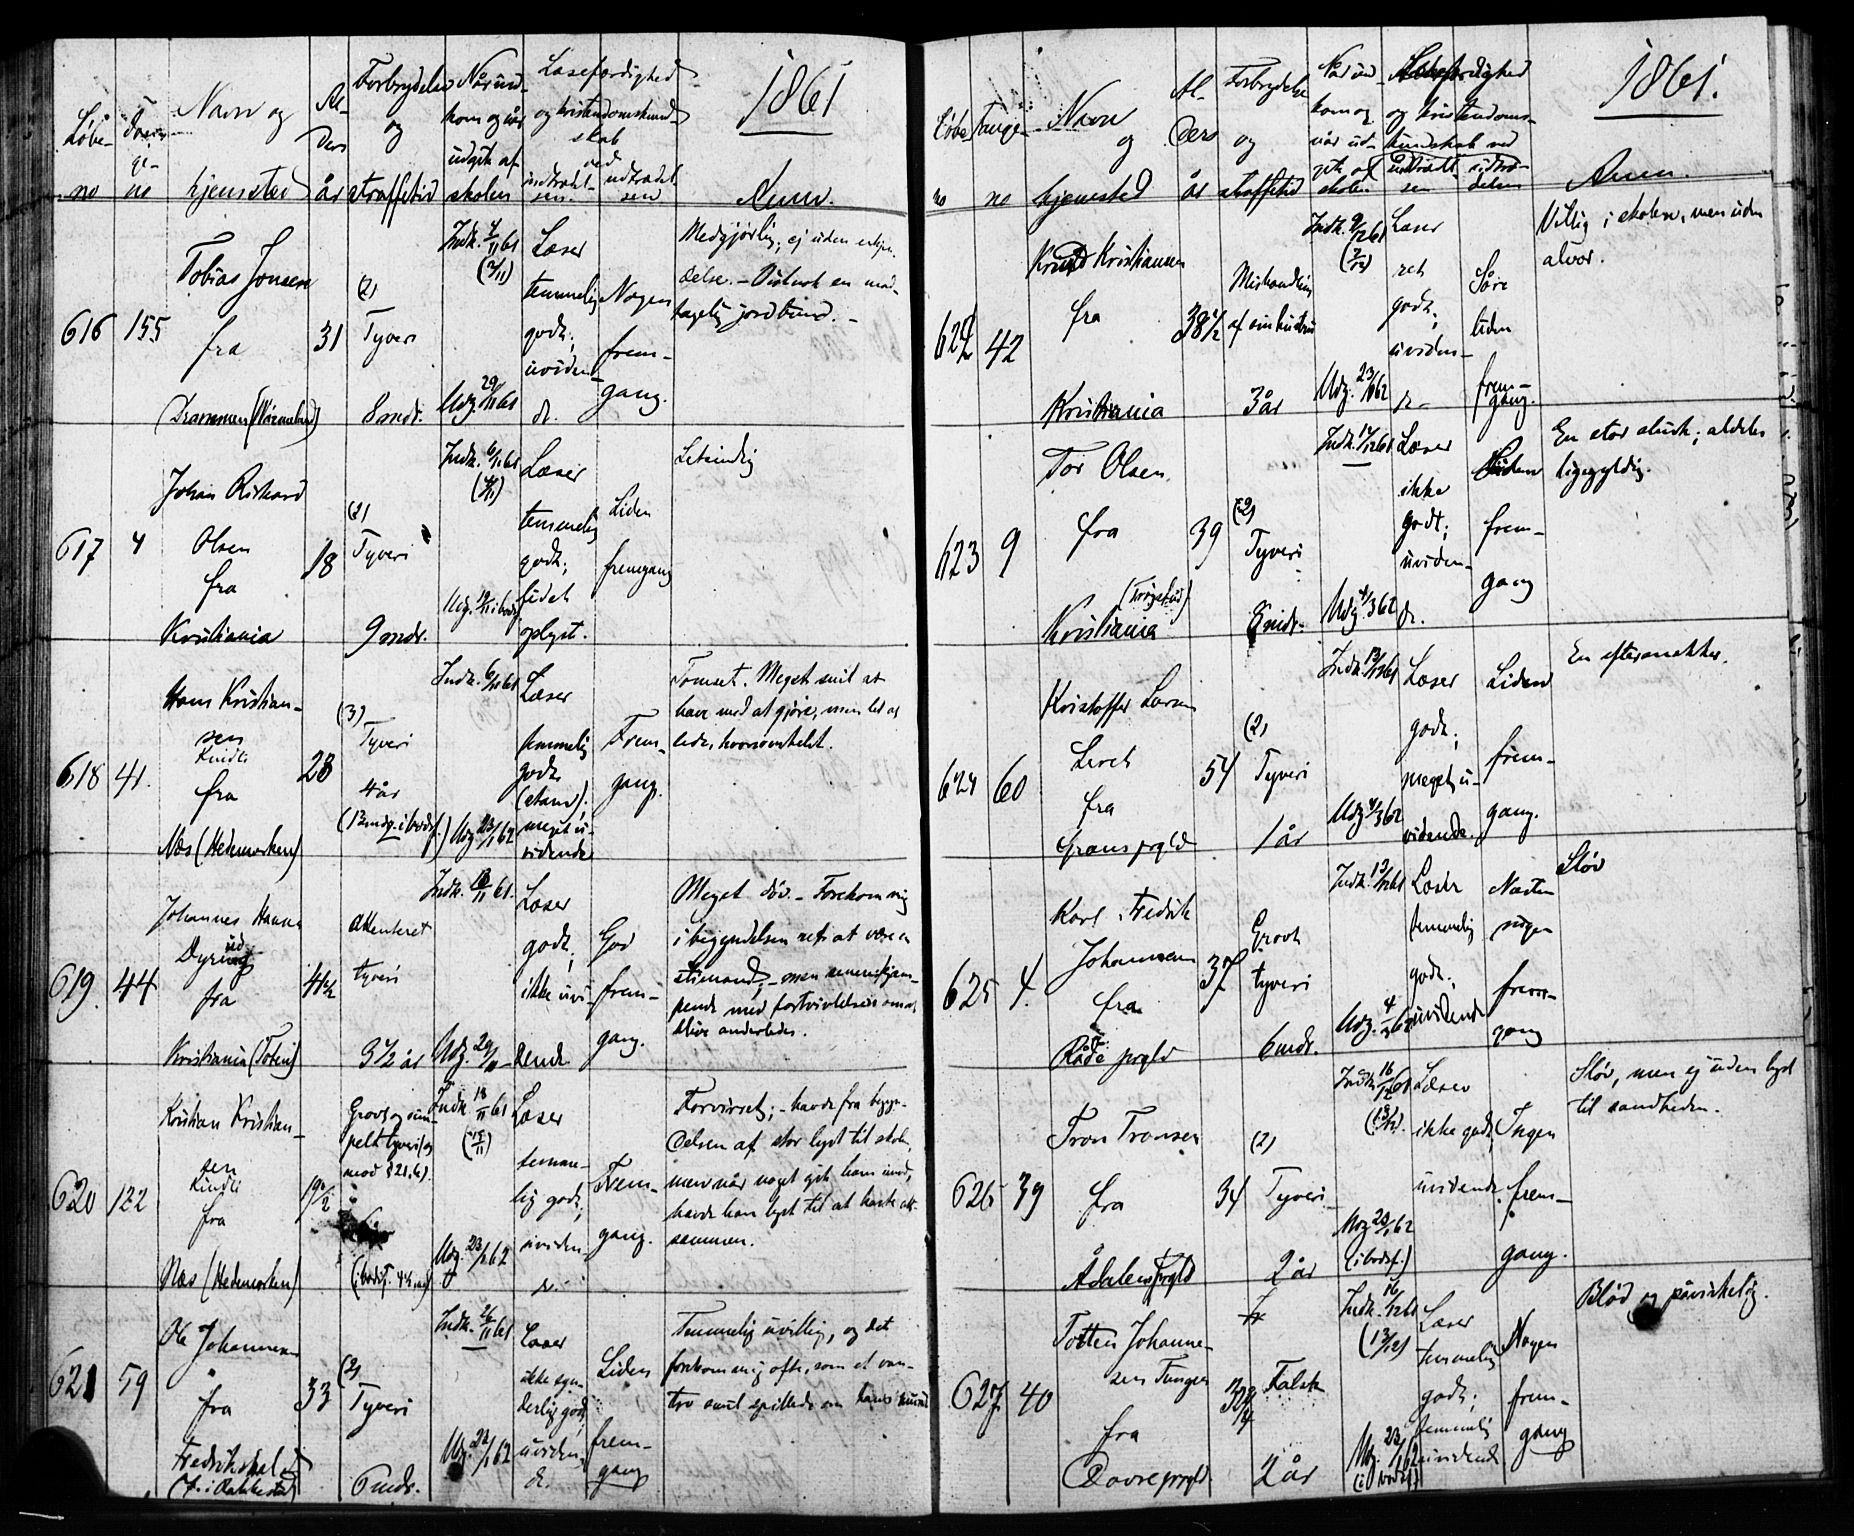 1861
Løbe-
no
Fan-
ge-
no
Navn og
hjemsted
Al-
ders
år
Forbrydelse
og
straffetid
Når ind-
kom og når
udgik af
skolen
Læsefærdighed
og kristendomskund-
skab
ved
indtrædel-
sen.
udtrædel-
sen
Anm.
616
155
Tobias Jonsen
fra
Drammen
31
(2)
Tyveri
8 mdr.
Indk. 4/11 61
Udg. 29/11 61
Læser
temmelig
godt;
uviden-
de.
Nogen
frem-
gang.
Medgjørlig; ej uden
617
4
Johan Rikard
Olsen
fra
Kristiania
18
(2)
Tyveri
9 mdr.
Indk. 6/11 61
Læser
temmelig
godt;
lidet
oplyst.
Liden
fremgang
Letsindig
618
41.
Hans Kristian-
sen
Kindli
fra
Næs (Hedemarken)
28
(3)
Tyveri
4 år
Indk. 6/11 61
Udg. 23/1 62
Læser
temmelig
godt
(stam);
meget u-
vidende
Frem-
gang.
Tomset. Meget smil at
have med at gjøre, men let at
lede, hvorsomhelst.
619.
44
Johannes Hansen
fra
Kristiania (Toten)
41 1/2
Attenteret
tyveri
3 1/2 år
Indk. 61.
Læser
godt;
ikke uvi-
dende
God
frem-
gang.
Meget døv. - Forekom mig
i begyndelsen ret at være en
men senere kjæm-
pende med fortvivlelsen om at
blive anderledes.
620
122
Kristian Kristian-
sen
Kindli
fra
Næs (Hedemarken)
Grovt og sim-
pelt tyveri
Indk. 18/11 61
Udg. 23/1 62
Læser
temme-
lig godt;
uviden-
de.
Frem-
gang.
Forvirret; - havde fra begyn-
delsen af stor lyst til skolen,
men når noget gik ham imod,
havde han lyst til at kaste alt
sammen.
621
59
Ole Johannesen
fra
Fredrikshald
33
(2)
Tyveri
6 mdr.
Indk. 26/11 61
Læser
ikke syn-
derlig godt;
uviden-
de.
Liden
frem-
gang
Temmelig uvillig, og det
forekom mig ofte, som et van-
tro smil spillede om hans mund
1861.
Løbe
no
Fange-
no
Navn
og
hjemsted
Al-
ders
år
Forbrydelse
og
straffetid
Når ind-
kom og
når ud-
gik af
skolen
Læsefærdighed
og kristendoms-
kundskab ved
Anm.
622
42
Knud Kristiansen
fra
Kristiania
38 1/2
Mishandling
af sin hustru
3 år
Indk. 9/12 61
Udg. 23/1 62
Læser
ret
godt;
uviden-
de
Såre
liden
frem-
gang.
Villig i skolen, men uden
alvor.
623
9
Tor Olsen
fra
(Trøgstad)
Kristiania
39
(2)
Tyveri
8 mdr.
Indk. 61
Læser
ikke
godt;
uviden-
de.
Liden
frem-
gang
En stor slusk; aldeles
ligegyldig.
624
60
Kristoffer Larsen
fra
Grans prgld
54
(2)
Tyveri
1 år
Indk. 13/12 61
Udg. 4/3 62
Læser
godt;
meget u-
vidende.
Liden
frem-
gang.
En eftersnakker.
625
4.
Karl Fredrik
Johannesen
fra
Råde prgld
37
Grovt
tyveri
6 mdr.
Indk. 13/12 61
Læser
temmelig
godt;
uvidende
Næsten
ingen
frem-
gang
Sløv
626
39
Tron Tronsen
fra
Ådalens prgld
34
(2)
Tyveri
2 år
Indk. 16/12 61
(13/12).
Udg. 23/1 62
(i bodsf.)
Læser
ikke godt;
uvidende.
Ingen
frem-
gang.
Sløv, men ej uden lyst
til sandheden.
627
40
Johanne-
sen
fra
Dovre prgld
Falsk
2 år
Indk. 16/12 61
(13/12)
Læser
temmelig
godt;
temmelig
uvidende
Nogen
frem-
gang
Blød og påvirkelig.